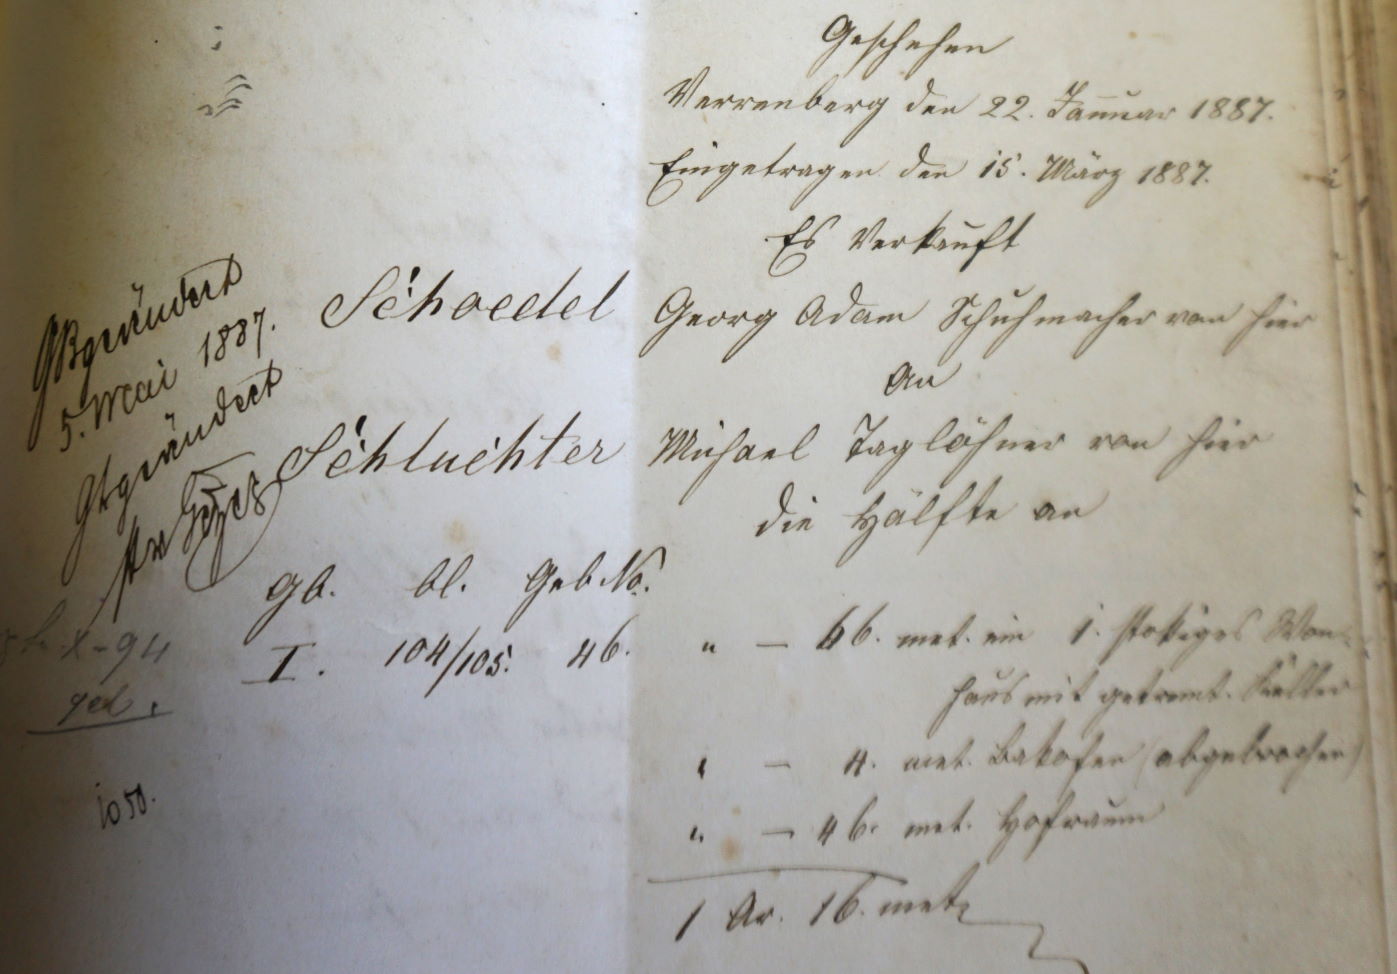 Geschehen
Verrenberg den 22. Januar 1887.
Eingetragen den 15. März 1887.
Es Verkauft
Schoedel Georg Adam Schuhmacher von hier
An
Schluchter Michael Taglöhner von hier
die Hälfte an
gb. bl. Geb No.
I. 104/105. 46. " — 66. met. ein 1. stokiges Won-
haus mit getremt. Keller
" — 4. met. Bakofen (abgebrochen)
" — 46. met. Hofraum
1 Ar. 16. met.
GBgeändert
5. Mai 1887.
geändert
X-94
1050.